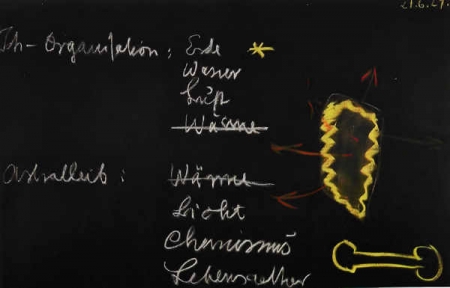 21.6.27.
Ich-Organisation: Erde
Wasser
Luft
Wärme
Astralleib: Wärme
Licht
Chemismus
Lebensäther